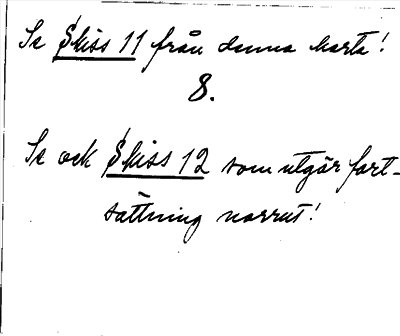 Se Skiss 11 från denna karta!
8.
Se ock Skiss 12 som utgör fort-
sättning norrut!